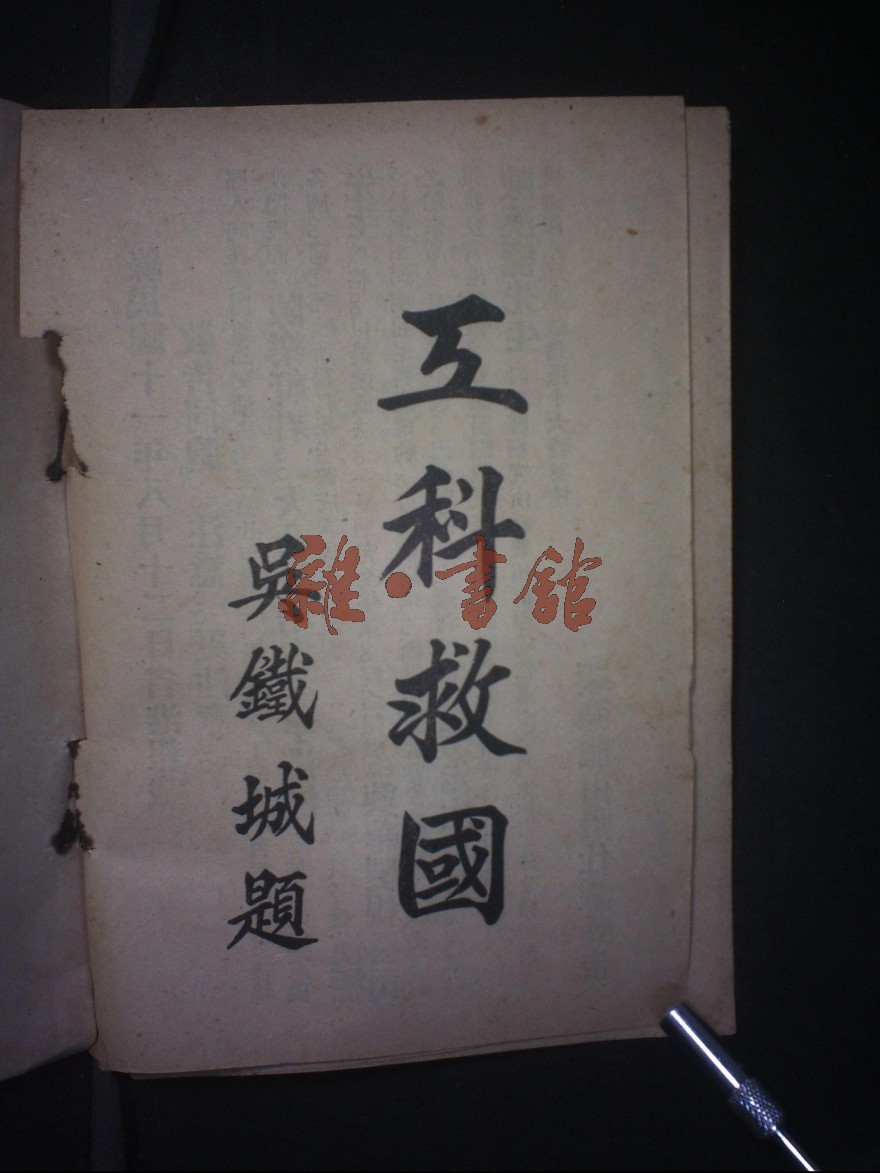 工科救國
吳鐵城題
雜·書館